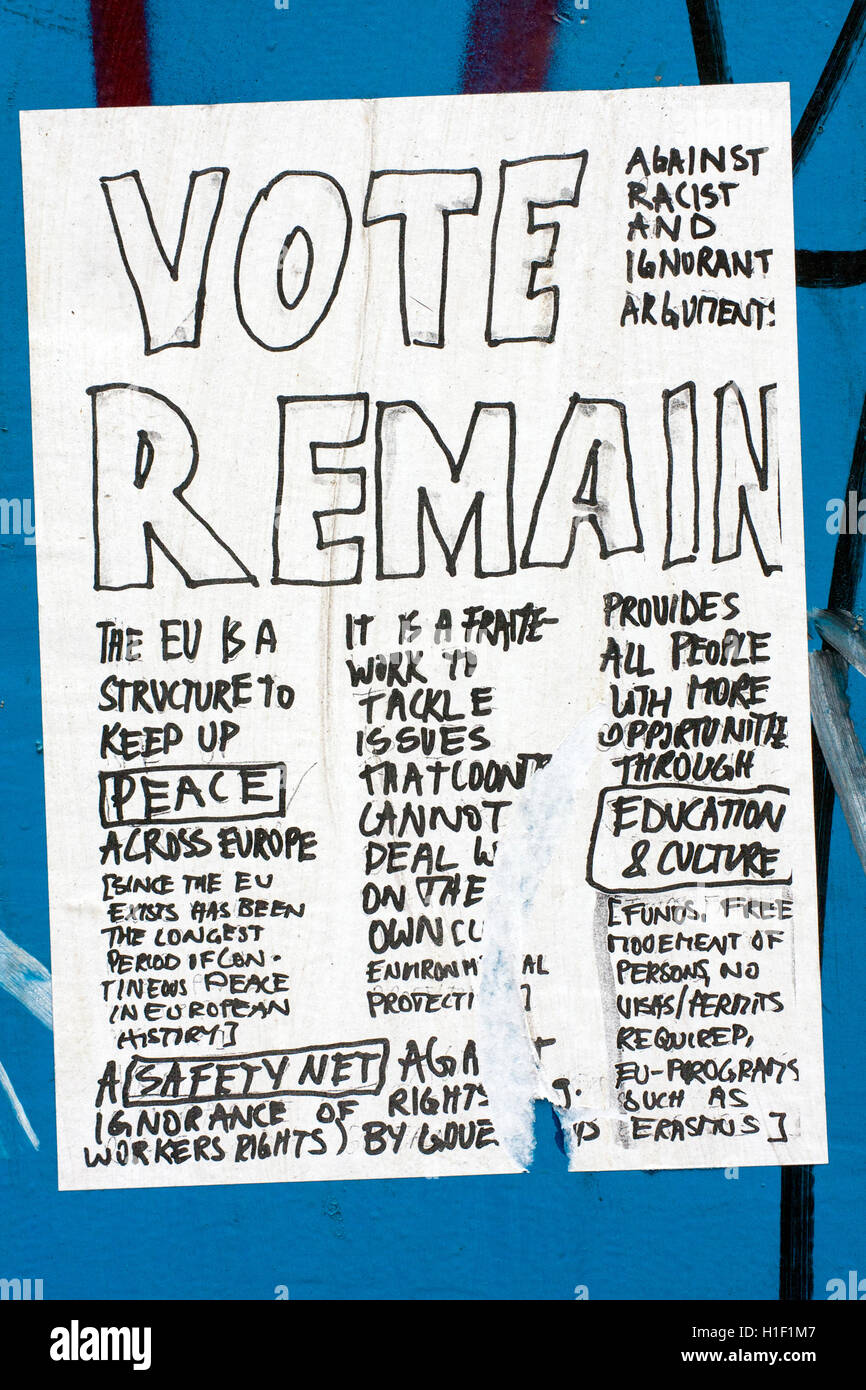 VOTE
REMAIN
AGAINST
RACIST
AND
IGNORANT
ARGUMENTS
THE EU IS A
STRUCTURE TO
KEEP UP
PEACE
ACROSS EUROPE
[SINCE THE EU
EXISTS HAS BEEN
THE LONGEST
PERIOD OF CON-
TINEOUS PEACE
IN EUROPEAN
HISTORY]
IT IS A FRAME-
WORK TO
TACKLE
ISSUES
THAT COUNT
CANNOT
DEAL W
ON THE
OWN
PROTECTI ]
PROVIDES
ALL PEOPLE
WITH MORE
OPPORTUNITIES
THROUGH
EDUCATION
& CULTURE
[FUNDS, FREE
MOVEMENT OF
PERSONS, NO
VISAS/PERMITS
REQUIRED,
EU-PROGRAMS
SUCH AS
ERASMUS]
A SAFETY NET AGA
IGNORANCE OF RIGHTS
WORKERS RIGHTS) BY GOVE
alamy
Image ID: H1F1M7
www.alamy.com